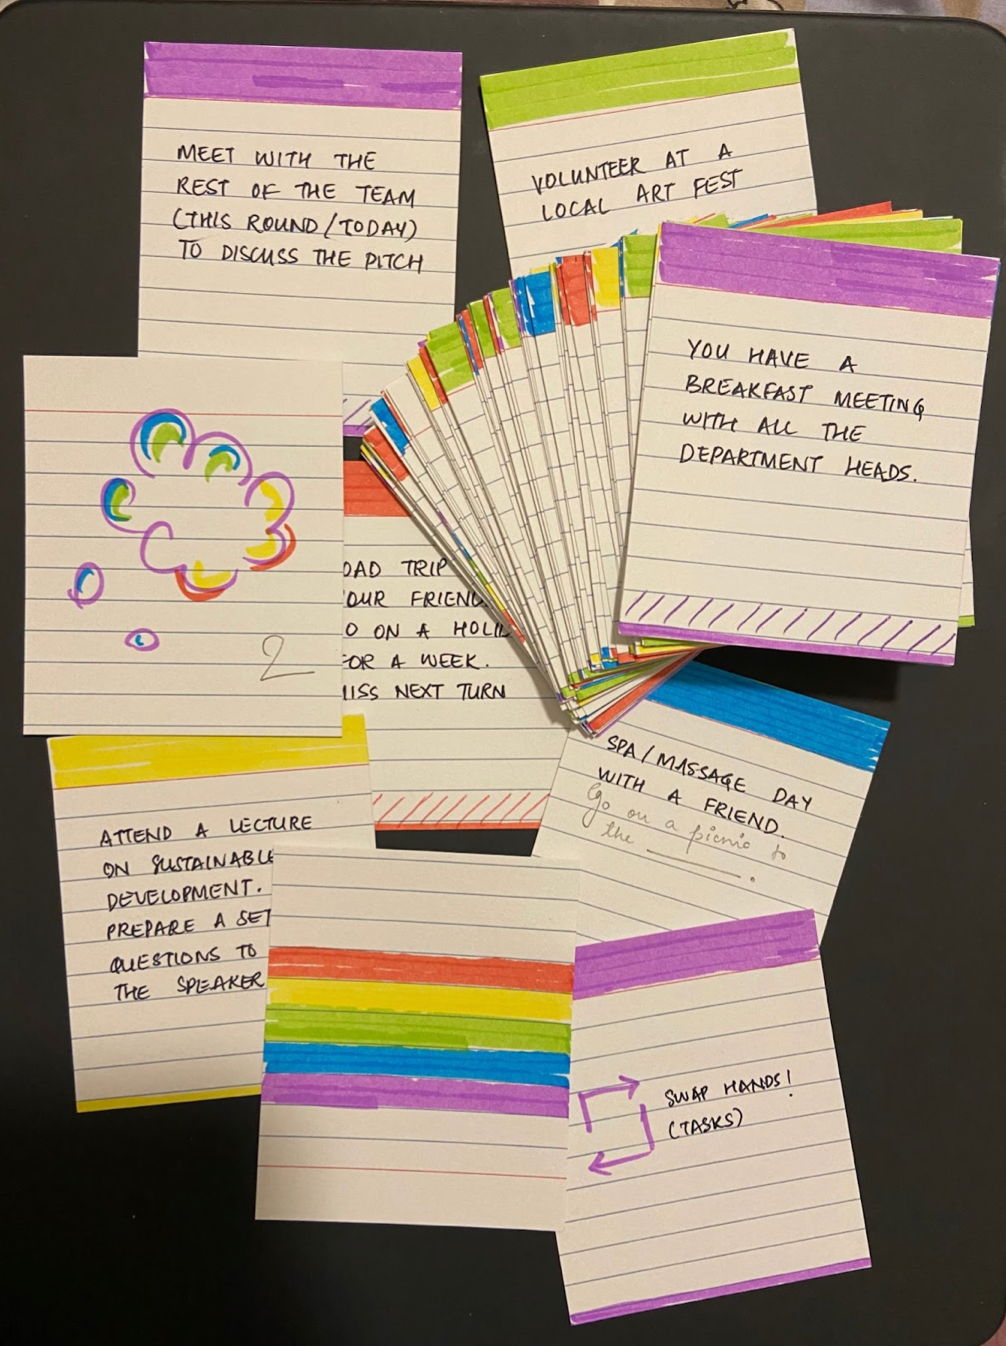 MEET WITH THE
REST OF THE TEAM
(THIS ROUND/TODAY)
TO DISCUSS THE PITCH
VOLUNTEER AT A
LOCAL ART FEST
YOU HAVE A
BREAKFAST MEETING
WITH ALL THE
DEPARTMENT HEADS.
2
OAD TRIP
OUR FRIEND
O ON A HOLI
FOR A WEEK.
MISS NEXT TURN
SPA/MASSAGE DAY
WITH A FRIEND.
Go on a picnic to
the ______.
ATTEND A LECTURE
ON SUSTAINABLE
DEVELOPMENT.
PREPARE A SET
QUESTIONS TO
THE SPEAKER
SWAP HANDS!
(TASKS)